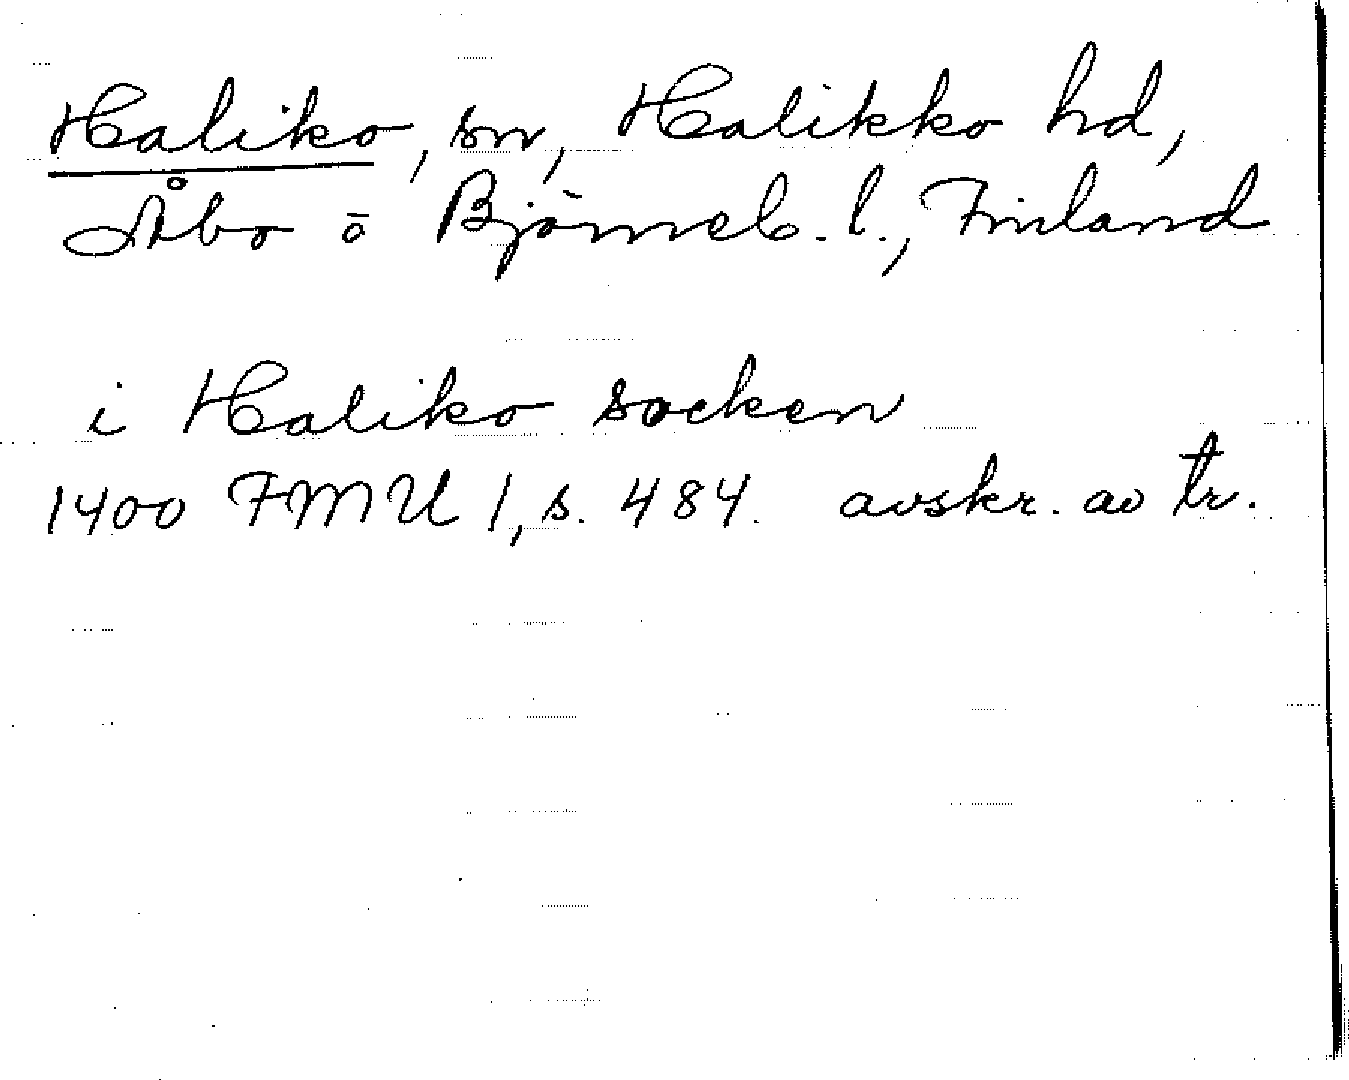 Haliko, sn, Halikko hd,
Åbo ō Björneb. l., Finland
i Haliko socken
1400 FMU 1, s. 484. avskr. av tr.